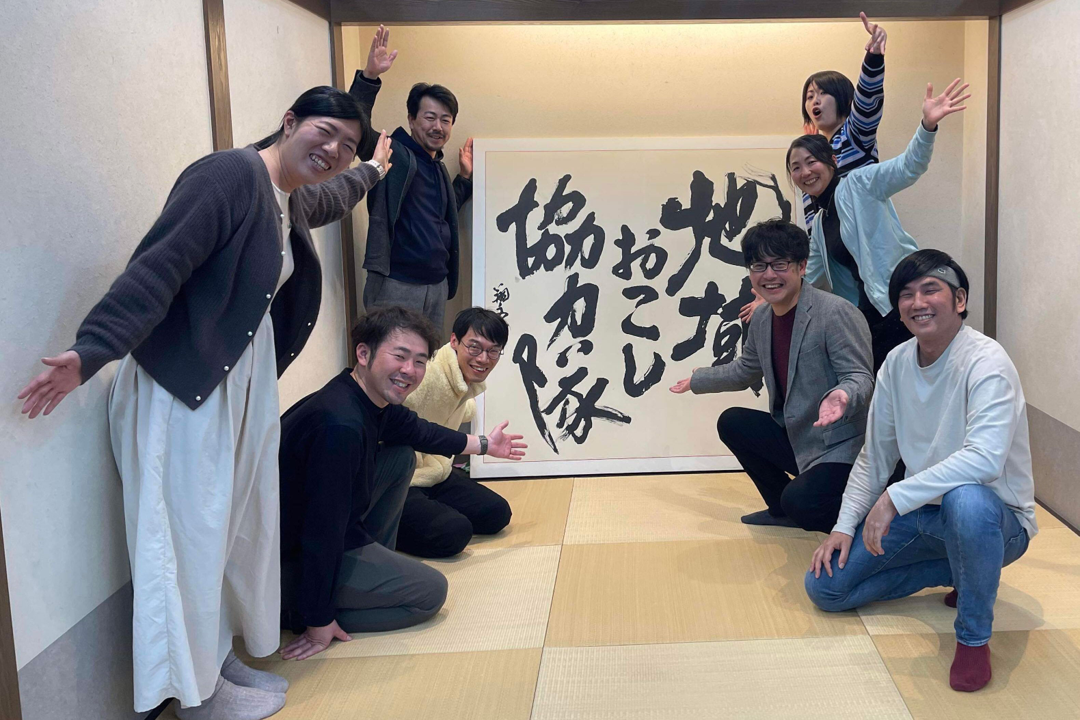 地域
おこし
協力隊
翔子